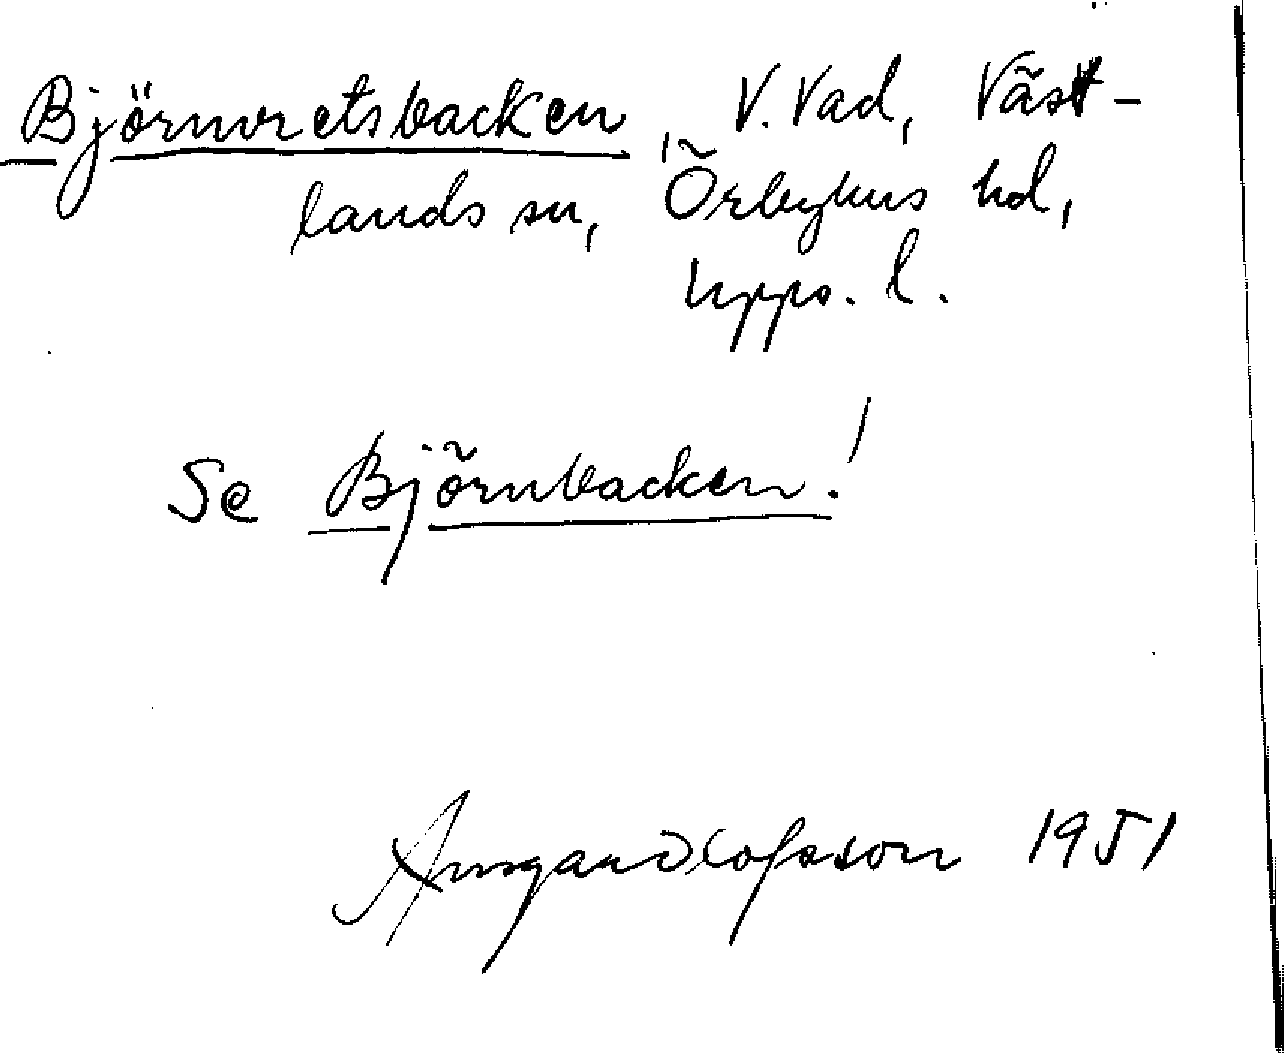 Björnvretsbacken, V. Vad,Väst-
lands sn, Örbyhus hd,
Upps. l.
Se Björnbacken!
Ansgar Olofsson 1951